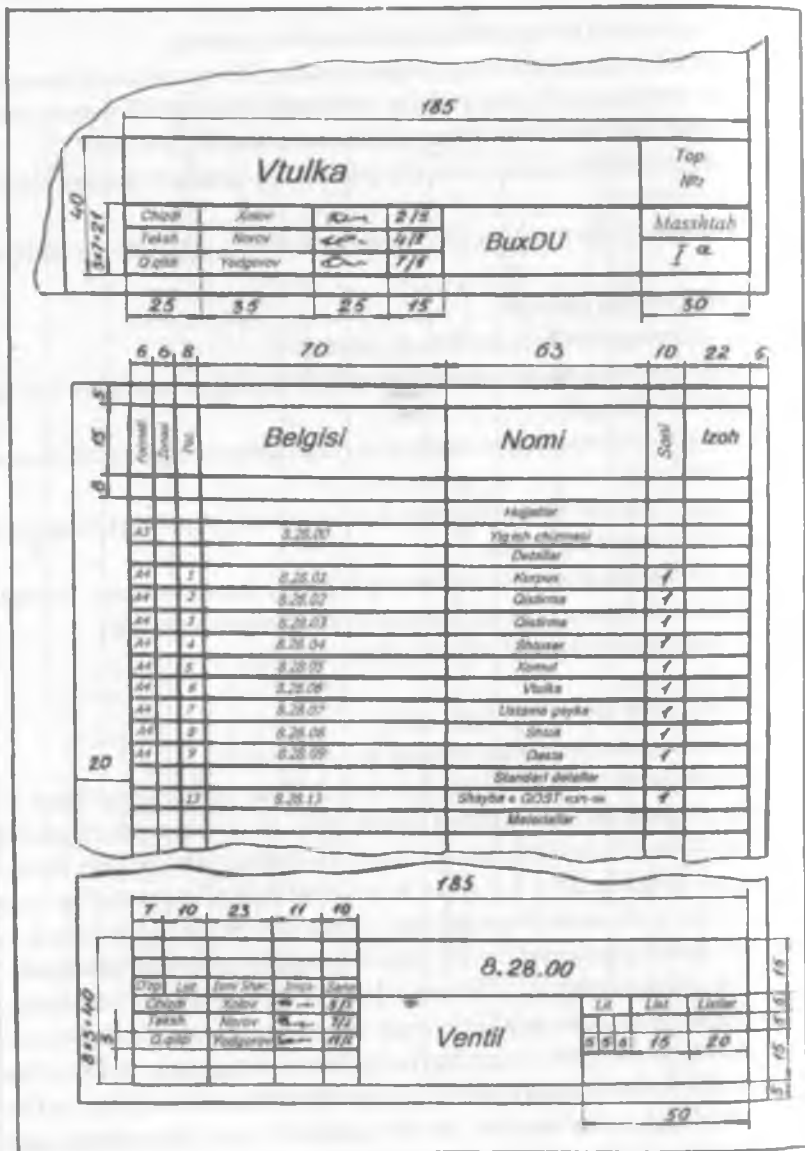 185
Vtulka
Top.
40
3x7=21
Chizdi Xolov 2/5
Teksh. Norov 4/5
Q.qildi Yodgorov 7/5
BuxDU
Masshtab
25 35 25 15 50
6 6 8 70 63 10 22 5
5
15
8
Formati Zonasi Poz. Belgisi Nomi Soni Izoh
Hujjatlar
A3 8.28.00 Yig'ish chizmasi
Detallar
A4 1 8.28.01 Korpus 1
A4 2 8.28.02 Qistirma 1
A4 3 8.28.03 Qistirma 1
A4 4 8.28.04 Shtuser 1
A4 5 8.28.05 Xomut 1
A4 6 8.28.06 Vtulka 1
A4 7 8.28.07 Ustama gayka 1
A4 8 8.28.08 1
A4 9 8.28.09 Dasta 1
20
Standart detallar
13 8.28.13 Shayba GOST 1
Materiallar
185
7 10 23 11 10
8.28.00
15
O'zg. List. Imzo Sana
Chizdi Xolov 5/5
Teksh. Norov
Q.qildi Yodgorov
8x5=40
5
Ventil
Lit. List Listlar
5 5 5 15 20
5
5
15
5
50